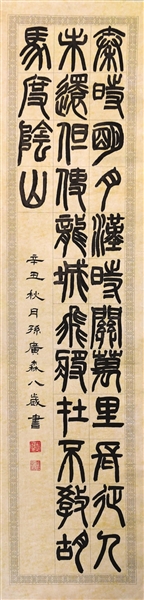 秦時明月漢時關萬里長征人
未還但使龍城飛將在不教胡
馬度陰山
辛丑秋月孫廣森八歲書